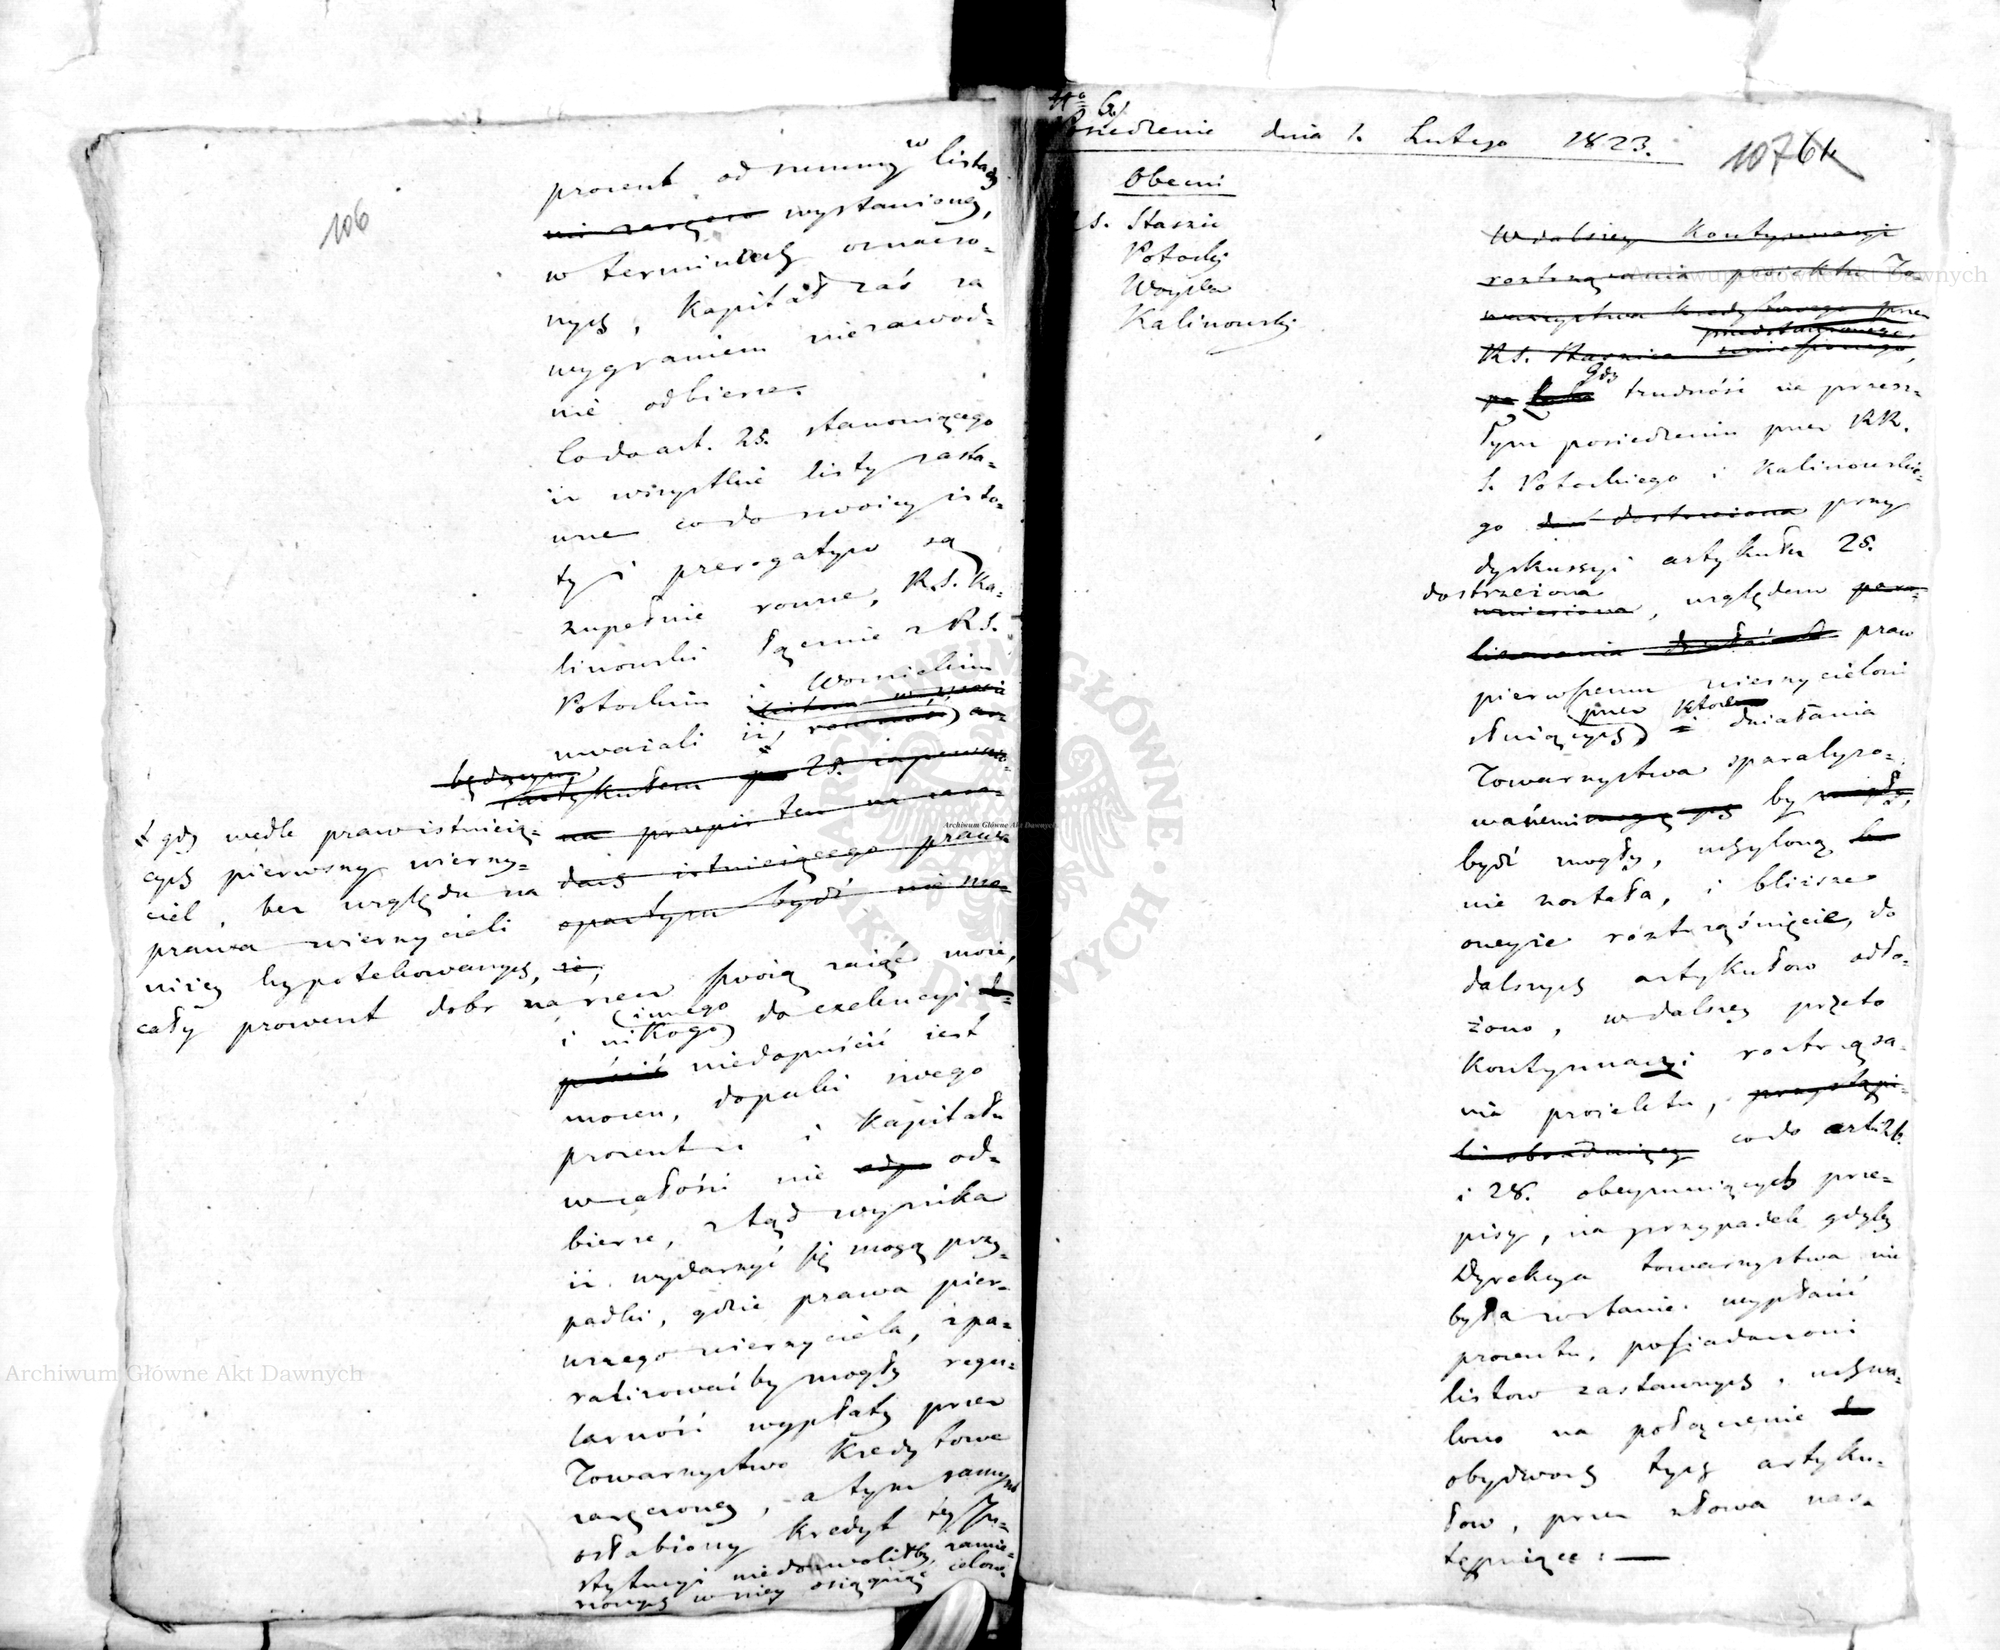 106
procent od summy w listach
nie zaręczo wystawioney,
w terminach oznaczo-
nych, Kapitał zaś za
wygraniem niezawod-
nie odbierze.
Co do art. 25. stanowiącego
iż wszystkie listy zasta-
wne co do swoiey isto-
ty i prerogatyw są
zupełnie rowne, R.S. Ka-
linowski łącznie z R.S.
Potockim i Woznickim
uważali iż, rowność ar-
będącym
artykułem 25. zapewnio-
na przepis ten na zasa-
dach istnieiącego prawa
opartym bydź nie mo-
że,
gdy wedle praw istnieią-
cych pierwszy wierzy-
ciel, bez względu na
prawa wierzycieli
niżey hypotekowanych,
cały prowent dobr na rzecz swoią zaiąć może,
i nikogo innego do exekucyi
niedopuścić iest
mocen, dopoki swego
procentu i Kapitału
w całości nie od-
bierze, ztąd wynika
iż wydarzyć się mogą przy-
padki, gdzie prawa pier-
wszego wierzyciela, spa-
raliżować by mogły regu-
larność wypłaty przez
Towarzystwo Kredytowe
zaręczoney, a tym samym
osłabiony kredyt tey In-
stytucyi niedozwoliłby, zamie-
rzonych w niey osiągnąć celow.
No 6
Posiedzenie dnia 1. Lutego 1823.
107
Obecni
R.S. Staszic
Potocki
Woyda
Kalinowski
W dalszey Kontynuacyi
roztrząsania proiektu To-
warzystwa Kredytowego przez
przedstawionego
R.S. Staszica wniesionego,
po Gdy trudność na przesz-
łym posiedzeniu przez RR.
S. Potockiego i Kalinowskie-
go dostrzeżona przy
dyskussyi artykułu 25.
dostrzeżona
wniesiona, względem para-
liżowania działań praw
pierwszemu wierzycielowi
służących przez które działania
Towarzystwa sparalyżo-
wanemi by
bydź mogły, uchyloną
nie została, i bliższe
oneyże roztrząśnięcie, do
dalszych artykułow odło-
żono, w dalszey przeto
Kontynuacyi roztrząsa-
nia proiektu, przystąpi-
co do art. 26.
i 28. obeymuiących prze-
pisy, na przypadek gdyby
Dyrekcya towarzystwa nie
była wstanie wypłacić
procentu, possiadaczowi
listow zastawnych, uchwa-
lono na połączenie
obydwoch tych artyku-
łow, przez słowa nas-
tępuiące:
Archiwum Główne Akt Dawnych